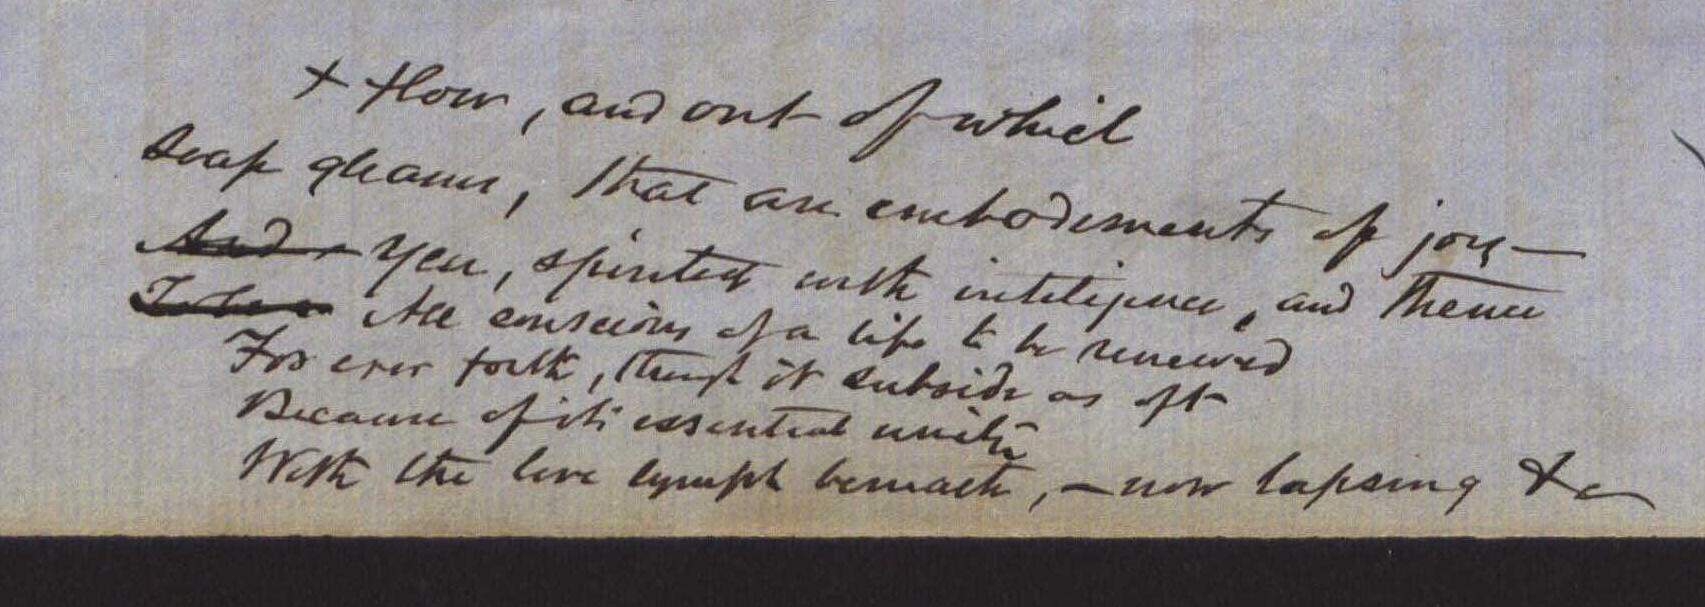 + flow, and out of which
Leap gleams, that are embodiments of joy—
And Yea, spirited with intelligence, and thence
All conscious of a life to be renewed
For ever forth, though it subside as oft
Because of its essential unity
With the live lymph beneath, – now lapsing &c